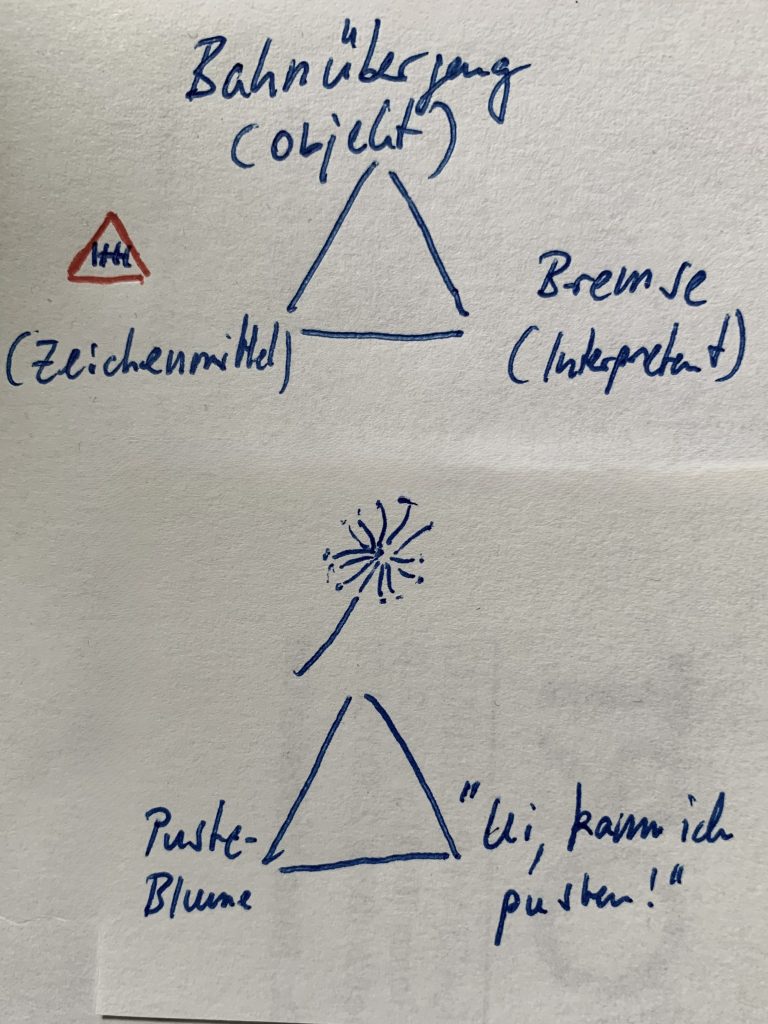 Bahnübergang
(Objekt)
Bremse
(Zeichenmittel)
(Interpretant)
Puste-
Blume
"Ui, kann ich
pusten!"